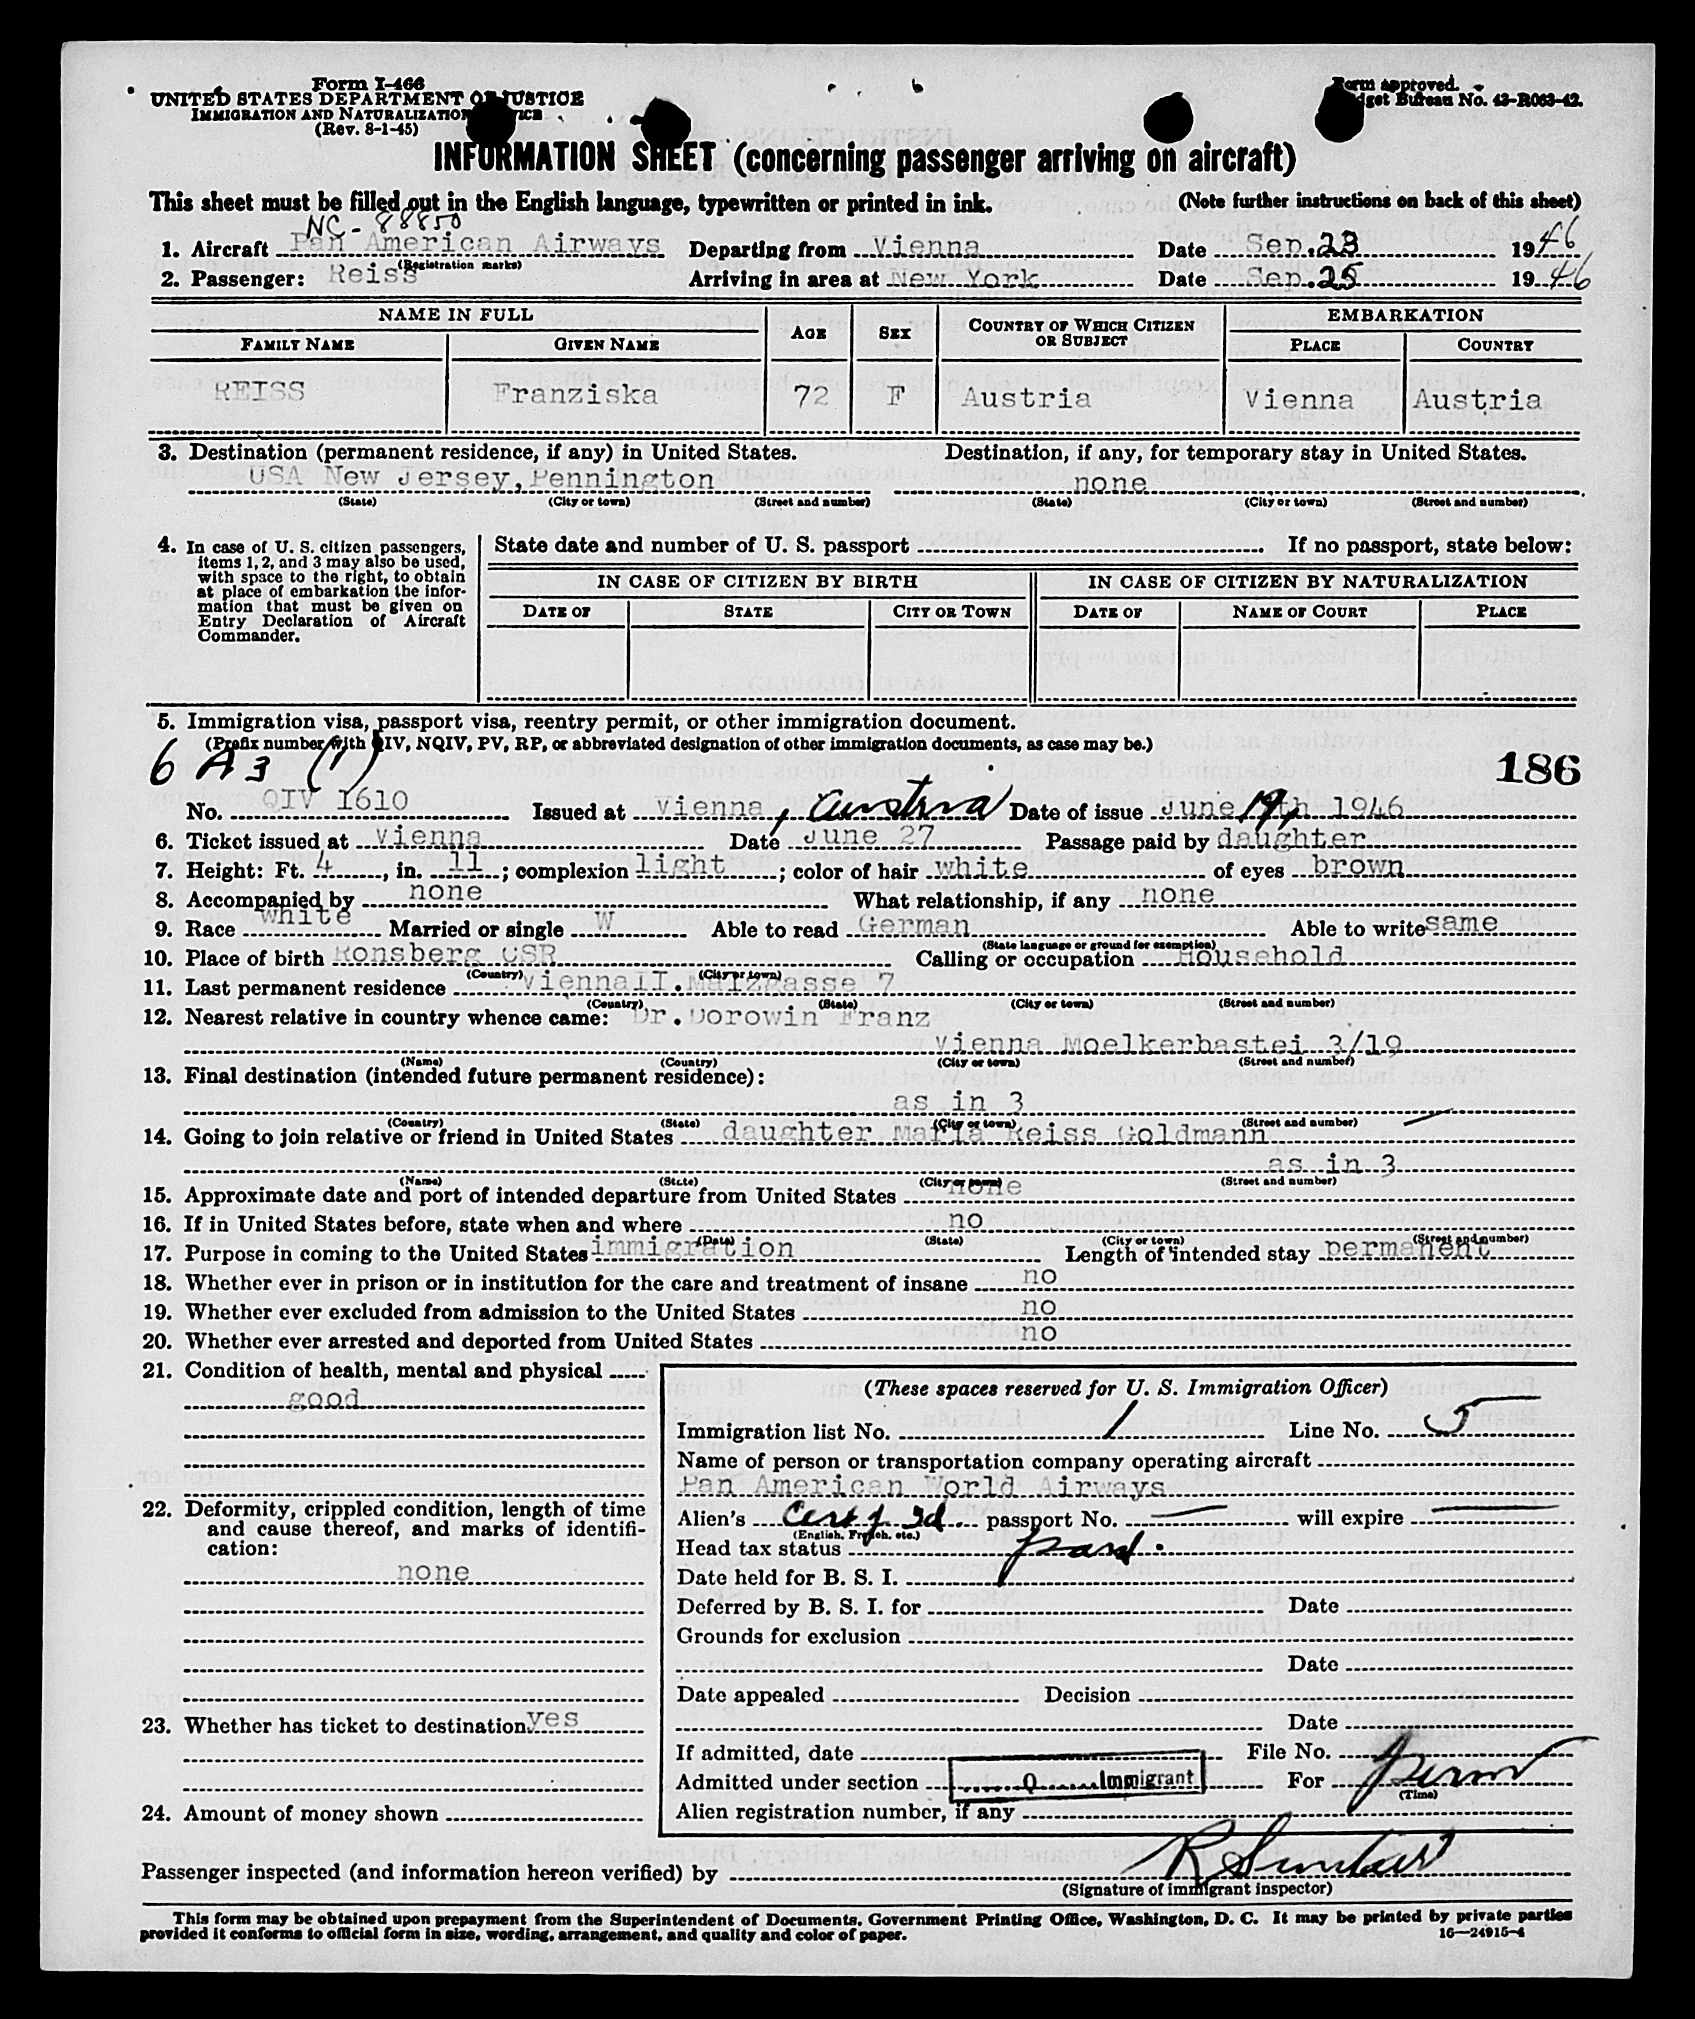 Form I-466
UNITED STATES DEPARTMENT OF JUSTICE
IMMIGRATION AND NATURALIZATION SERVICE
(Rev. 8-1-45)
Form approved.
Budget Bureau No. 43-R063-42.
INFORMATION SHEET (concerning passenger arriving on aircraft)
This sheet must be filled out in the English language, typewritten or printed in ink. (Note further instructions on back of this sheet)
NC-88850
1. Aircraft Pan American Airways Departing from Vienna Date Sep.23 1946
(Registration marks)
2. Passenger: Reiss Arriving in area at New York Date Sep.25 1946
NAME IN FULL AGE SEX COUNTRY OF WHICH CITIZEN OR SUBJECT EMBARKATION
FAMILY NAME GIVEN NAME PLACE COUNTRY
REISS Franziska 72 F Austria Vienna Austria
3. Destination (permanent residence, if any) in United States. Destination, if any, for temporary stay in United States.
USA New Jersey, Pennington none
(State) (City or town) (Street and number) (State) (City or town) (Street and number)
4. In case of U. S. citizen passengers,
items 1, 2, and 3 may also be used,
with space to the right, to obtain
at place of embarkation the infor-
mation that must be given on
Entry Declaration of Aircraft
Commander.
State date and number of U. S. passport If no passport, state below:
IN CASE OF CITIZEN BY BIRTH IN CASE OF CITIZEN BY NATURALIZATION
DATE OF STATE CITY OR TOWN DATE OF NAME OF COURT PLACE
5. Immigration visa, passport visa, reentry permit, or other immigration document.
(Prefix number with QIV, NQIV, PV, RP, or abbreviated designation of other immigration documents, as case may be.)
6 A3 (1) 186
No. QIV 1610 Issued at Vienna, Austria Date of issue June 19th 1946
6. Ticket issued at Vienna Date June 27 Passage paid by daughter
7. Height: Ft. 4, in. 11; complexion light; color of hair white of eyes brown
8. Accompanied by none What relationship, if any none
9. Race white Married or single W Able to read German Able to write same
(State language or ground for exemption)
10. Place of birth Ronsberg CSR Calling or occupation Household
(Country) (City or town)
11. Last permanent residence Vienna II. Malzgasse 7
(Country) (State) (City or town) (Street and number)
12. Nearest relative in country whence came: Dr. Dorowin Franz
Vienna Moelkerbastei 3/19
(Name) (Country) (City or town) (Street and number)
13. Final destination (intended future permanent residence):
as in 3
(Country) (State) (City or town) (Street and number)
14. Going to join relative or friend in United States daughter Maria Reiss Goldmann
as in 3
(Name) (State) (City or town) (Street and number)
15. Approximate date and port of intended departure from United States none
16. If in United States before, state when and where no
(Date) (State) (City or town) (Street and number)
17. Purpose in coming to the United States immigration Length of intended stay permanent
18. Whether ever in prison or in institution for the care and treatment of insane no
19. Whether ever excluded from admission to the United States no
20. Whether ever arrested and deported from United States no
21. Condition of health, mental and physical
good
22. Deformity, crippled condition, length of time
and cause thereof, and marks of identifi-
cation:
none
23. Whether has ticket to destination yes
24. Amount of money shown
(These spaces reserved for U. S. Immigration Officer)
Immigration list No. 1 Line No. 5
Name of person or transportation company operating aircraft
Pan American World Airways
Alien's Cert of Id. passport No. — will expire —
(English, French, etc.)
Head tax status paid.
Date held for B. S. I.
Deferred by B. S. I. for Date
Grounds for exclusion
Date
Date appealed Decision
Date
If admitted, date File No.
Admitted under section Q Immigrant For Perm
(Time)
Alien registration number, if any
Passenger inspected (and information hereon verified) by
(Signature of immigrant inspector)
This form may be obtained upon prepayment from the Superintendent of Documents, Government Printing Office, Washington, D. C. It may be printed by private parties
provided it conforms to official form in size, wording, arrangement, and quality and color of paper. 16—24915-4